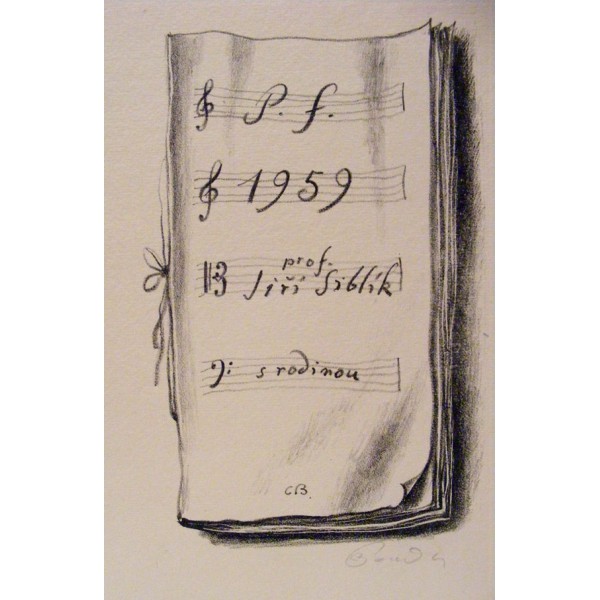 P. f.
1959
prof.
Jiří Šiblík
s rodinou
CB.